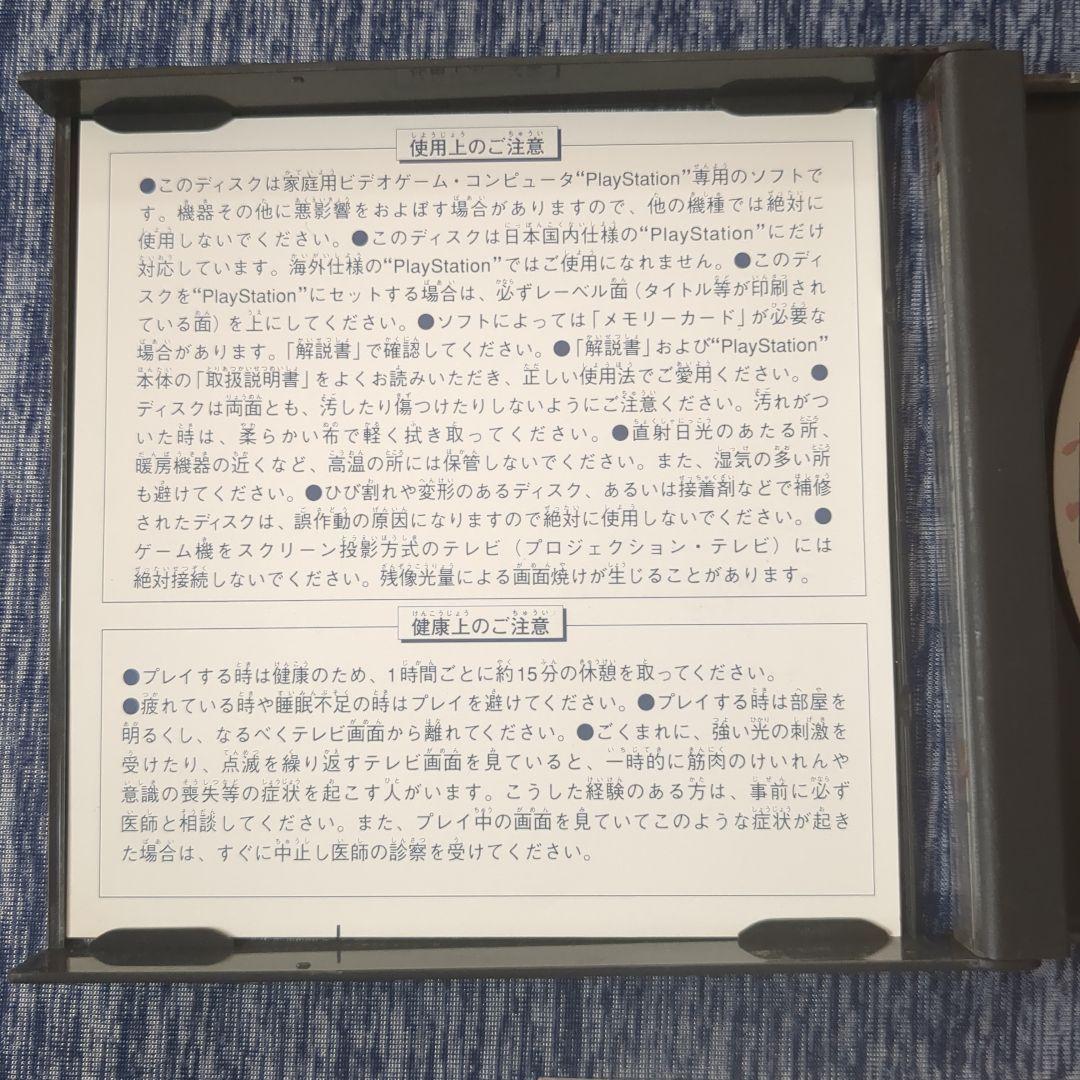 使用上のご注意
●このディスクは家庭用ビデオゲーム・コンピュータ“PlayStation”専用のソフトで
す。機器その他に悪影響をおよぼす場合がありますので、他の機種では絶対に
使用しないでください。●このディスクは日本国内仕様の“PlayStation”にだけ
対応しています。海外仕様の“PlayStation”ではご使用になれません。●このディ
スクを“PlayStation”にセットする場合は、必ずレーベル面（タイトル等が印刷され
ている面）を上にしてください。●ソフトによっては「メモリーカード」が必要な
場合があります。「解説書」で確認してください。●「解説書」および“PlayStation”
本体の「取扱説明書」をよくお読みいただき、正しい使用法でご愛用ください。●
ディスクは両面とも、汚したり傷つけたりしないようにご注意ください。汚れがつ
いた時は、柔らかい布で軽く拭き取ってください。●直射日光のあたる所、
暖房機器の近くなど、高温の所には保管しないでください。また、湿気の多い所
も避けてください。●ひび割れや変形のあるディスク、あるいは接着剤などで補修
されたディスクは、誤作動の原因になりますので絶対に使用しないでください。●
ゲーム機をスクリーン投影方式のテレビ（プロジェクション・テレビ）には
絶対接続しないでください。残像光量による画面焼けが生じることがあります。
健康上のご注意
●プレイする時は健康のため、1時間ごとに約15分の休憩を取ってください。
●疲れている時や睡眠不足の時はプレイを避けてください。●プレイする時は部屋を
明るくし、なるべくテレビ画面から離れてください。●ごくまれに、強い光の刺激を
受けたり、点滅を繰り返すテレビ画面を見ていると、一時的に筋肉のけいれんや
意識の喪失等の症状を起こす人がいます。こうした経験のある方は、事前に必ず
医師と相談してください。また、プレイ中の画面を見ていてこのような症状が起き
た場合は、すぐに中止し医師の診察を受けてください。